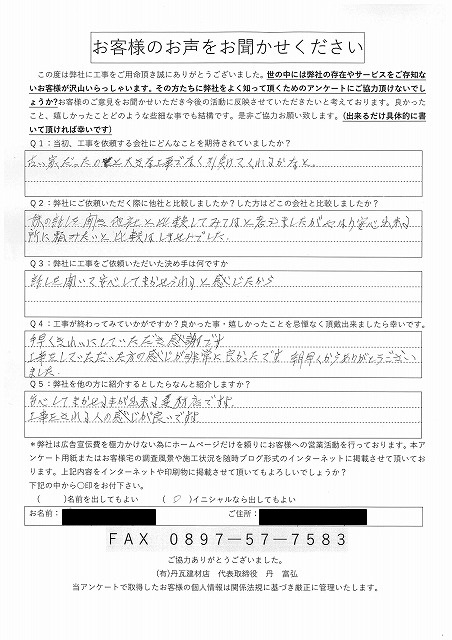 お客様のお声をお聞かせください
この度は弊社に工事をご用命頂き誠にありがとうございました。世の中には弊社の存在やサービスをご存知な
いお客様が沢山いらっしゃいます。その方たちに弊社をよく知って頂くためのアンケートにご協力頂けないでし
ょうか?お客様のご意見をお聞かせいただき今後の活動に反映させていただきたいと考えております。良かった
こと、嬉しかったことどのような些細な事でも結構です。是非ご協力お願い致します。(出来るだけ具体的に書
いて頂ければ幸いです)
Q1:当初、工事を依頼する会社にどんなことを期待されていましたか?
古い家だった
大きな工事でなく引受けてくれるかなと
Q2:弊社にご依頼いただく際に他社と比較しましたか?した方はどこの会社と比較しましたか?
他社と比較してみてはと言われましたがやはり安心出来る
所に頼みたいと比較はしませんでした。
Q3:弊社に工事をご依頼いただいた決め手は何ですか
話した聞いて安心してまかせられると感じたから
Q4:工事が終わってみていかがですか?良かった事・嬉しかったことを忌憚なく頂戴出来ましたら幸いです。
手早くきれいにしていただき感謝です
工事をしていただいた方の感じが非常に良かったです 朝早くからありがとうござい
ました。
Q5:弊社を他の方に紹介するとしたらなんと紹介しますか?
安心してまかせる事が出来る建材店です。
工事をされる人の感じが良いです。
*弊社は広告宣伝費を極力かけない為にホームページだけを頼りにお客様への営業活動を行っております。本ア
ンケート用紙またはお客様宅の調査風景や施工状況を随時ブログ形式のインターネットに掲載させて頂いてお
ります。上記内容をインターネットや印刷物に掲載させて頂いてもよろしいでしょうか?
下記の中から〇印をお付下さい。
( )名前を出してもよい (〇)イニシャルなら出してもよい
お名前: ご住所:
FAX 0897-57-7583
ご協力ありがとうございました。
(有)丹瓦建材店 代表取締役 丹 富弘
当アンケートで取得したお客様の個人情報は関係法規に基づき厳正に管理いたします。